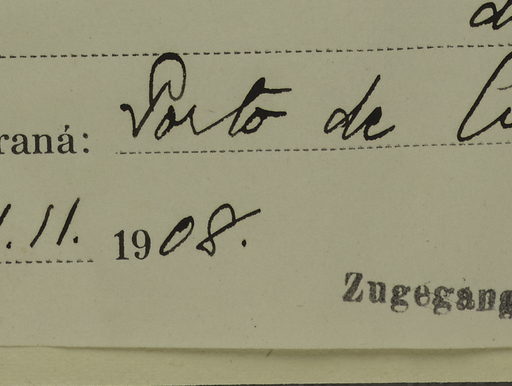 raná: Porto de
.11. 1908.
Zugegang